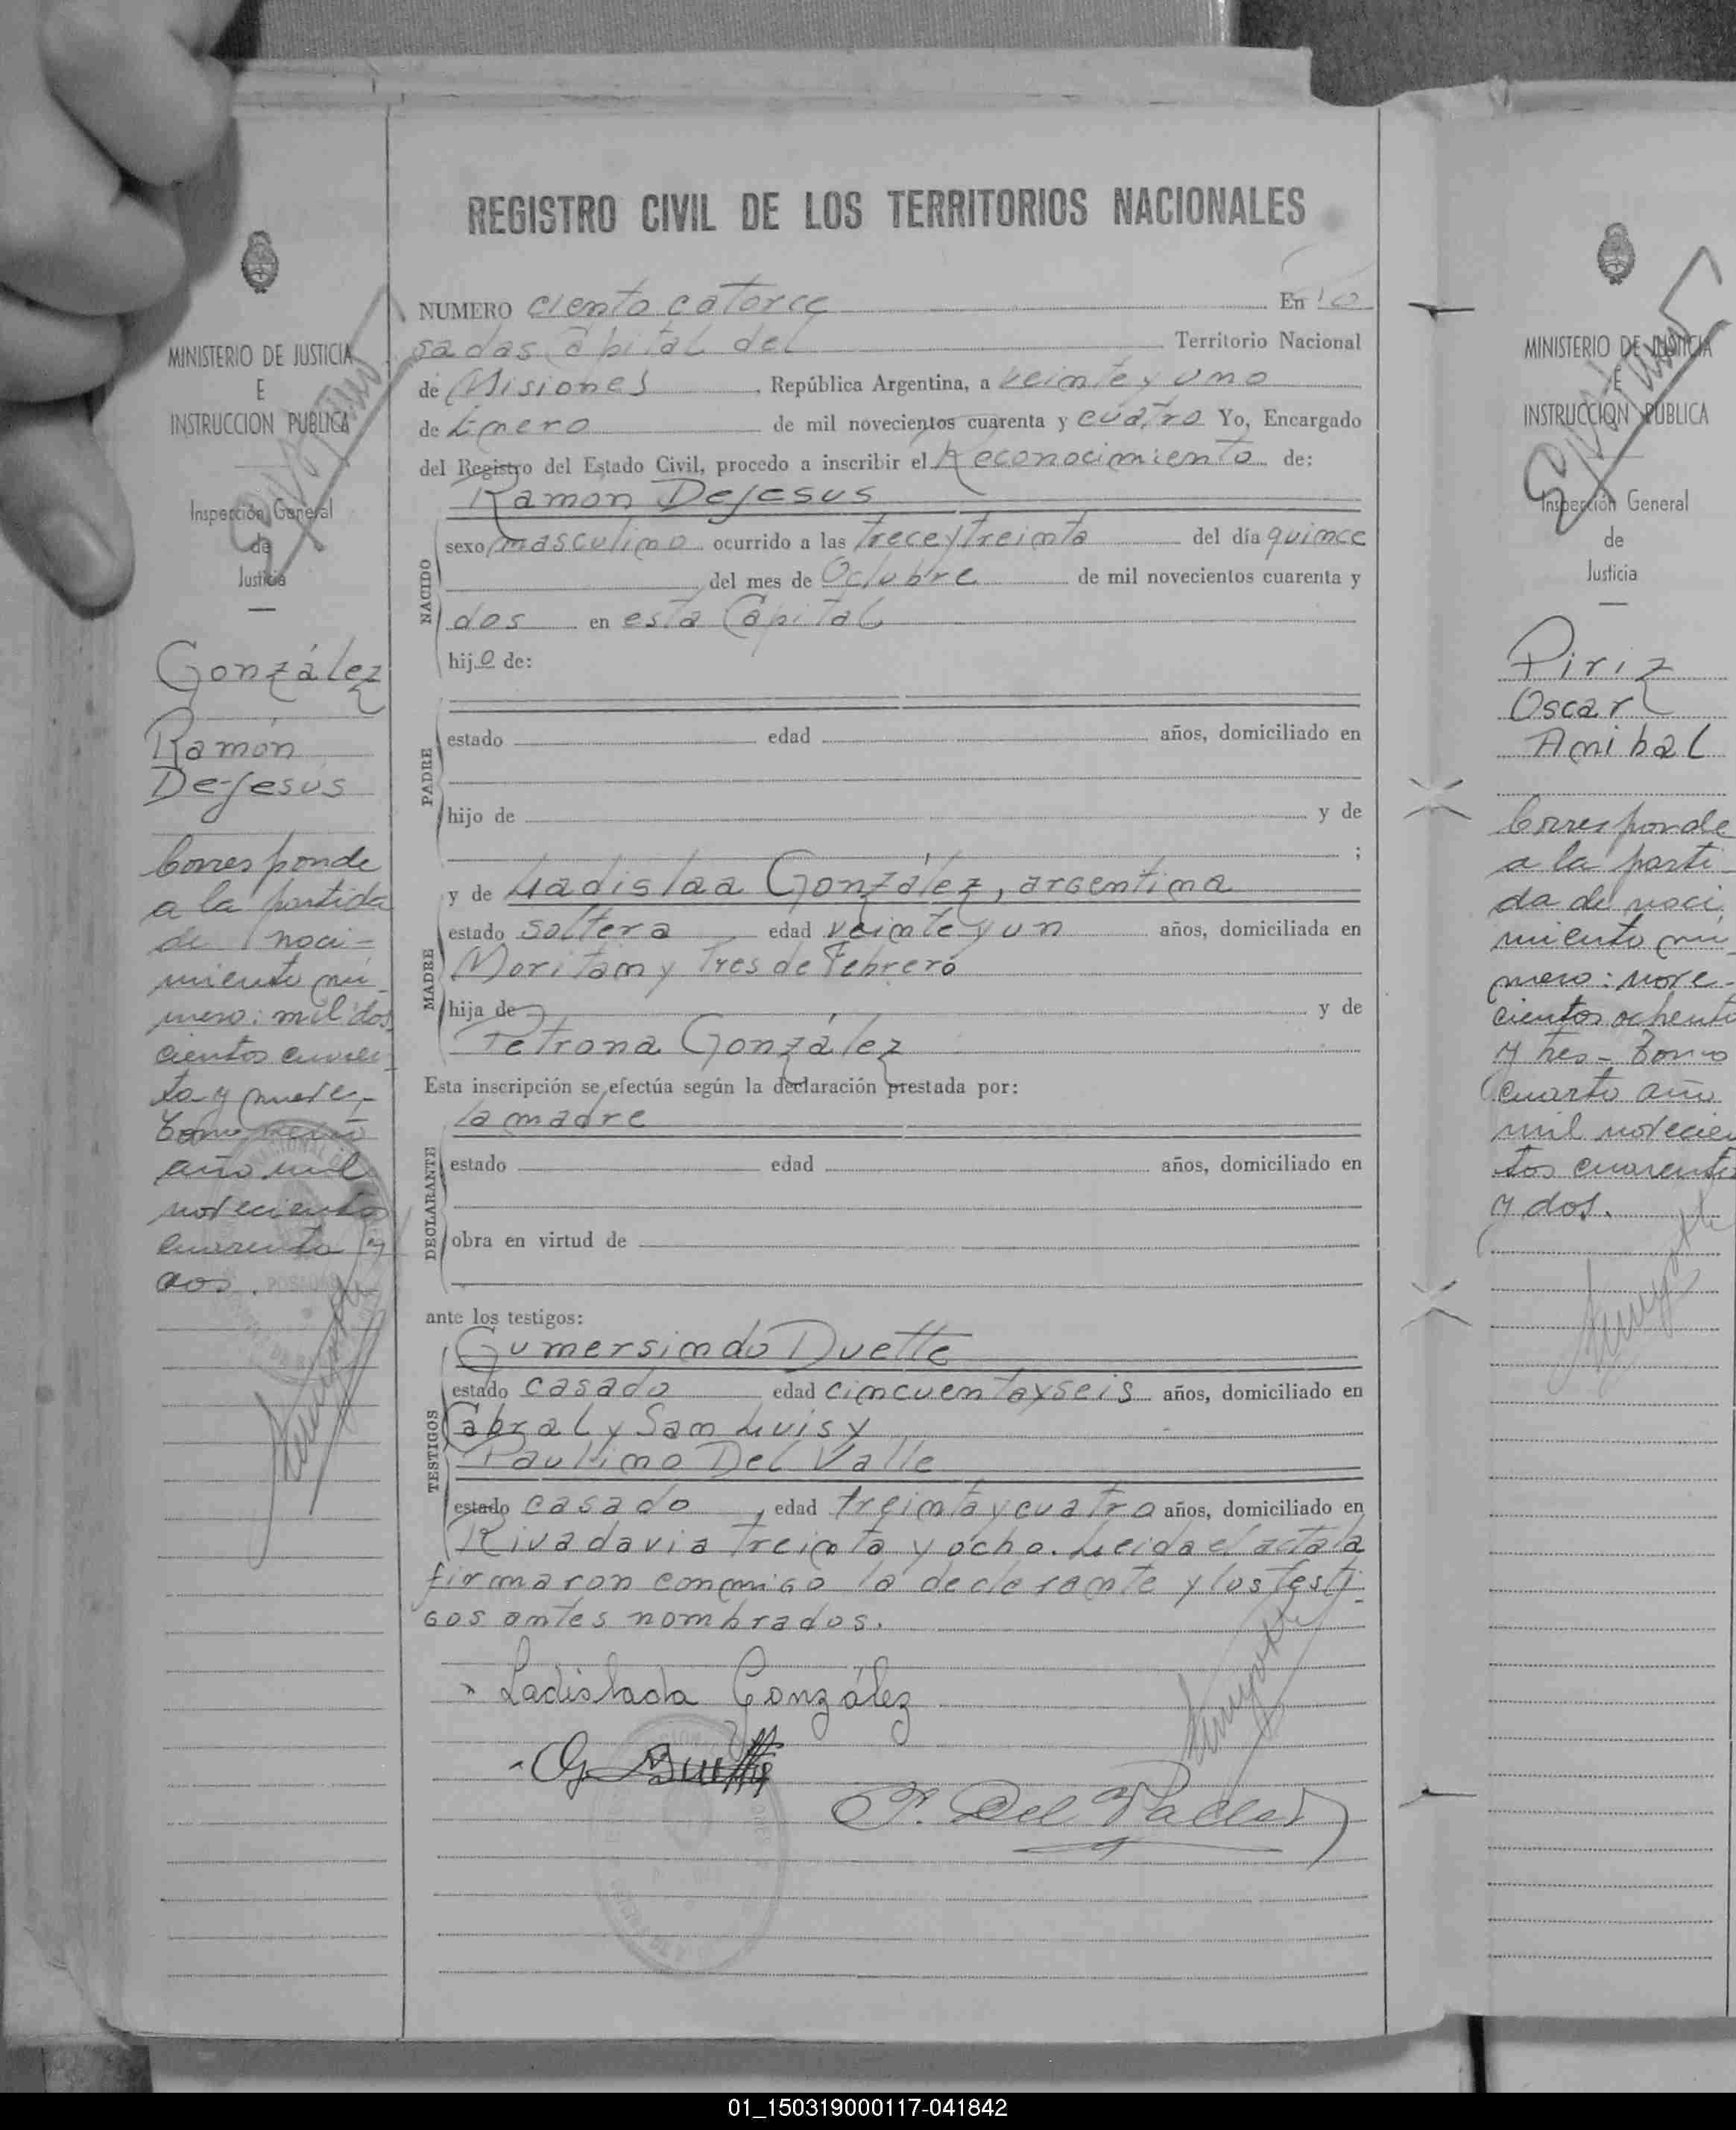 REGISTRO CIVIL DE LOS TERRITORIOS NACIONALES
NUMERO ciento catorce En Po
sadas Capital del Territorio Nacional
de Misiones, República Argentina, a veinte y uno
de Enero de mil novecientos cuarenta y cuatro Yo, Encargado
del Registro del Estado Civil, procedo a inscribir el Reconocimiento de:
Ramon DeJesus
NACIDO
sexo masculino ocurrido a las trece y treinta del día quince
del mes de Octubre de mil novecientos cuarenta y
dos en esta Capital
hijo de:
PADRE
estado edad años, domiciliado en
hijo de y de
;
MADRE
y de Ladislaa González, argentina
estado soltera edad veinte y un años, domiciliada en
Moritan y Tres de Febrero
hija de y de
Petrona González
Esta inscripción se efectúa según la declaración prestada por:
la madre
DECLARANTE
estado edad años, domiciliado en
obra en virtud de
ante los testigos:
TESTIGOS
Gumersindo Duette
estado casado edad cincuenta y seis años, domiciliado en
Cabral y San Luis y
Paulino Del Valle
estado casado, edad treinta y cuatro años, domiciliado en
Rivadavia treinta y ocho. Leida el acta la
firmaron conmigo la declarante y los testi-
gos antes nombrados.
Ladislada González
G Duette
P. Del Valle
MINISTERIO DE JUSTICIA
E
INSTRUCCION PUBLICA
Inspección General
de
Justicia
González
Ramón
De-Jesús
Corresponde
a la partida
de naci-
miento nú-
mero: mil dos
cientos cuaren-
ta y nueve,-
Tomo
año mil
novecientos
cuarenta y
dos.
POSADAS
MINISTERIO DE JUSTICIA
E
INSTRUCCION PUBLICA
Inspección General
de
Justicia
Piriz
Oscar
Anibal
Corresponde
a la parti-
da de naci-
miento nú-
mero: nove-
cientos ochenta
y tres - Tomo
cuarto año
mil novecien
tos cuarenta
y dos.
01_150319000117-041842